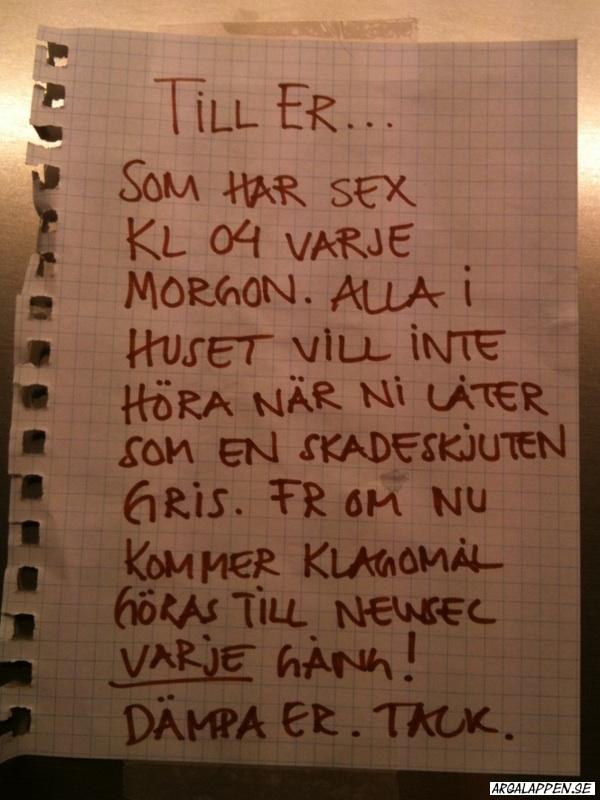 TILL ER...
SOM HAR SEX
KL 04 VARJE
MORGON. ALLA I
HUSET VILL INTE
HÖRA NÄR NI LÅTER
SOM EN SKADESKJUTEN
GRIS. FR OM NU
KOMMER KLAGOMÅL
GÖRAS TILL NEWSEC
VARJE GÅNG!
DÄMPA ER. TACK.
ARGALAPPEN.SE